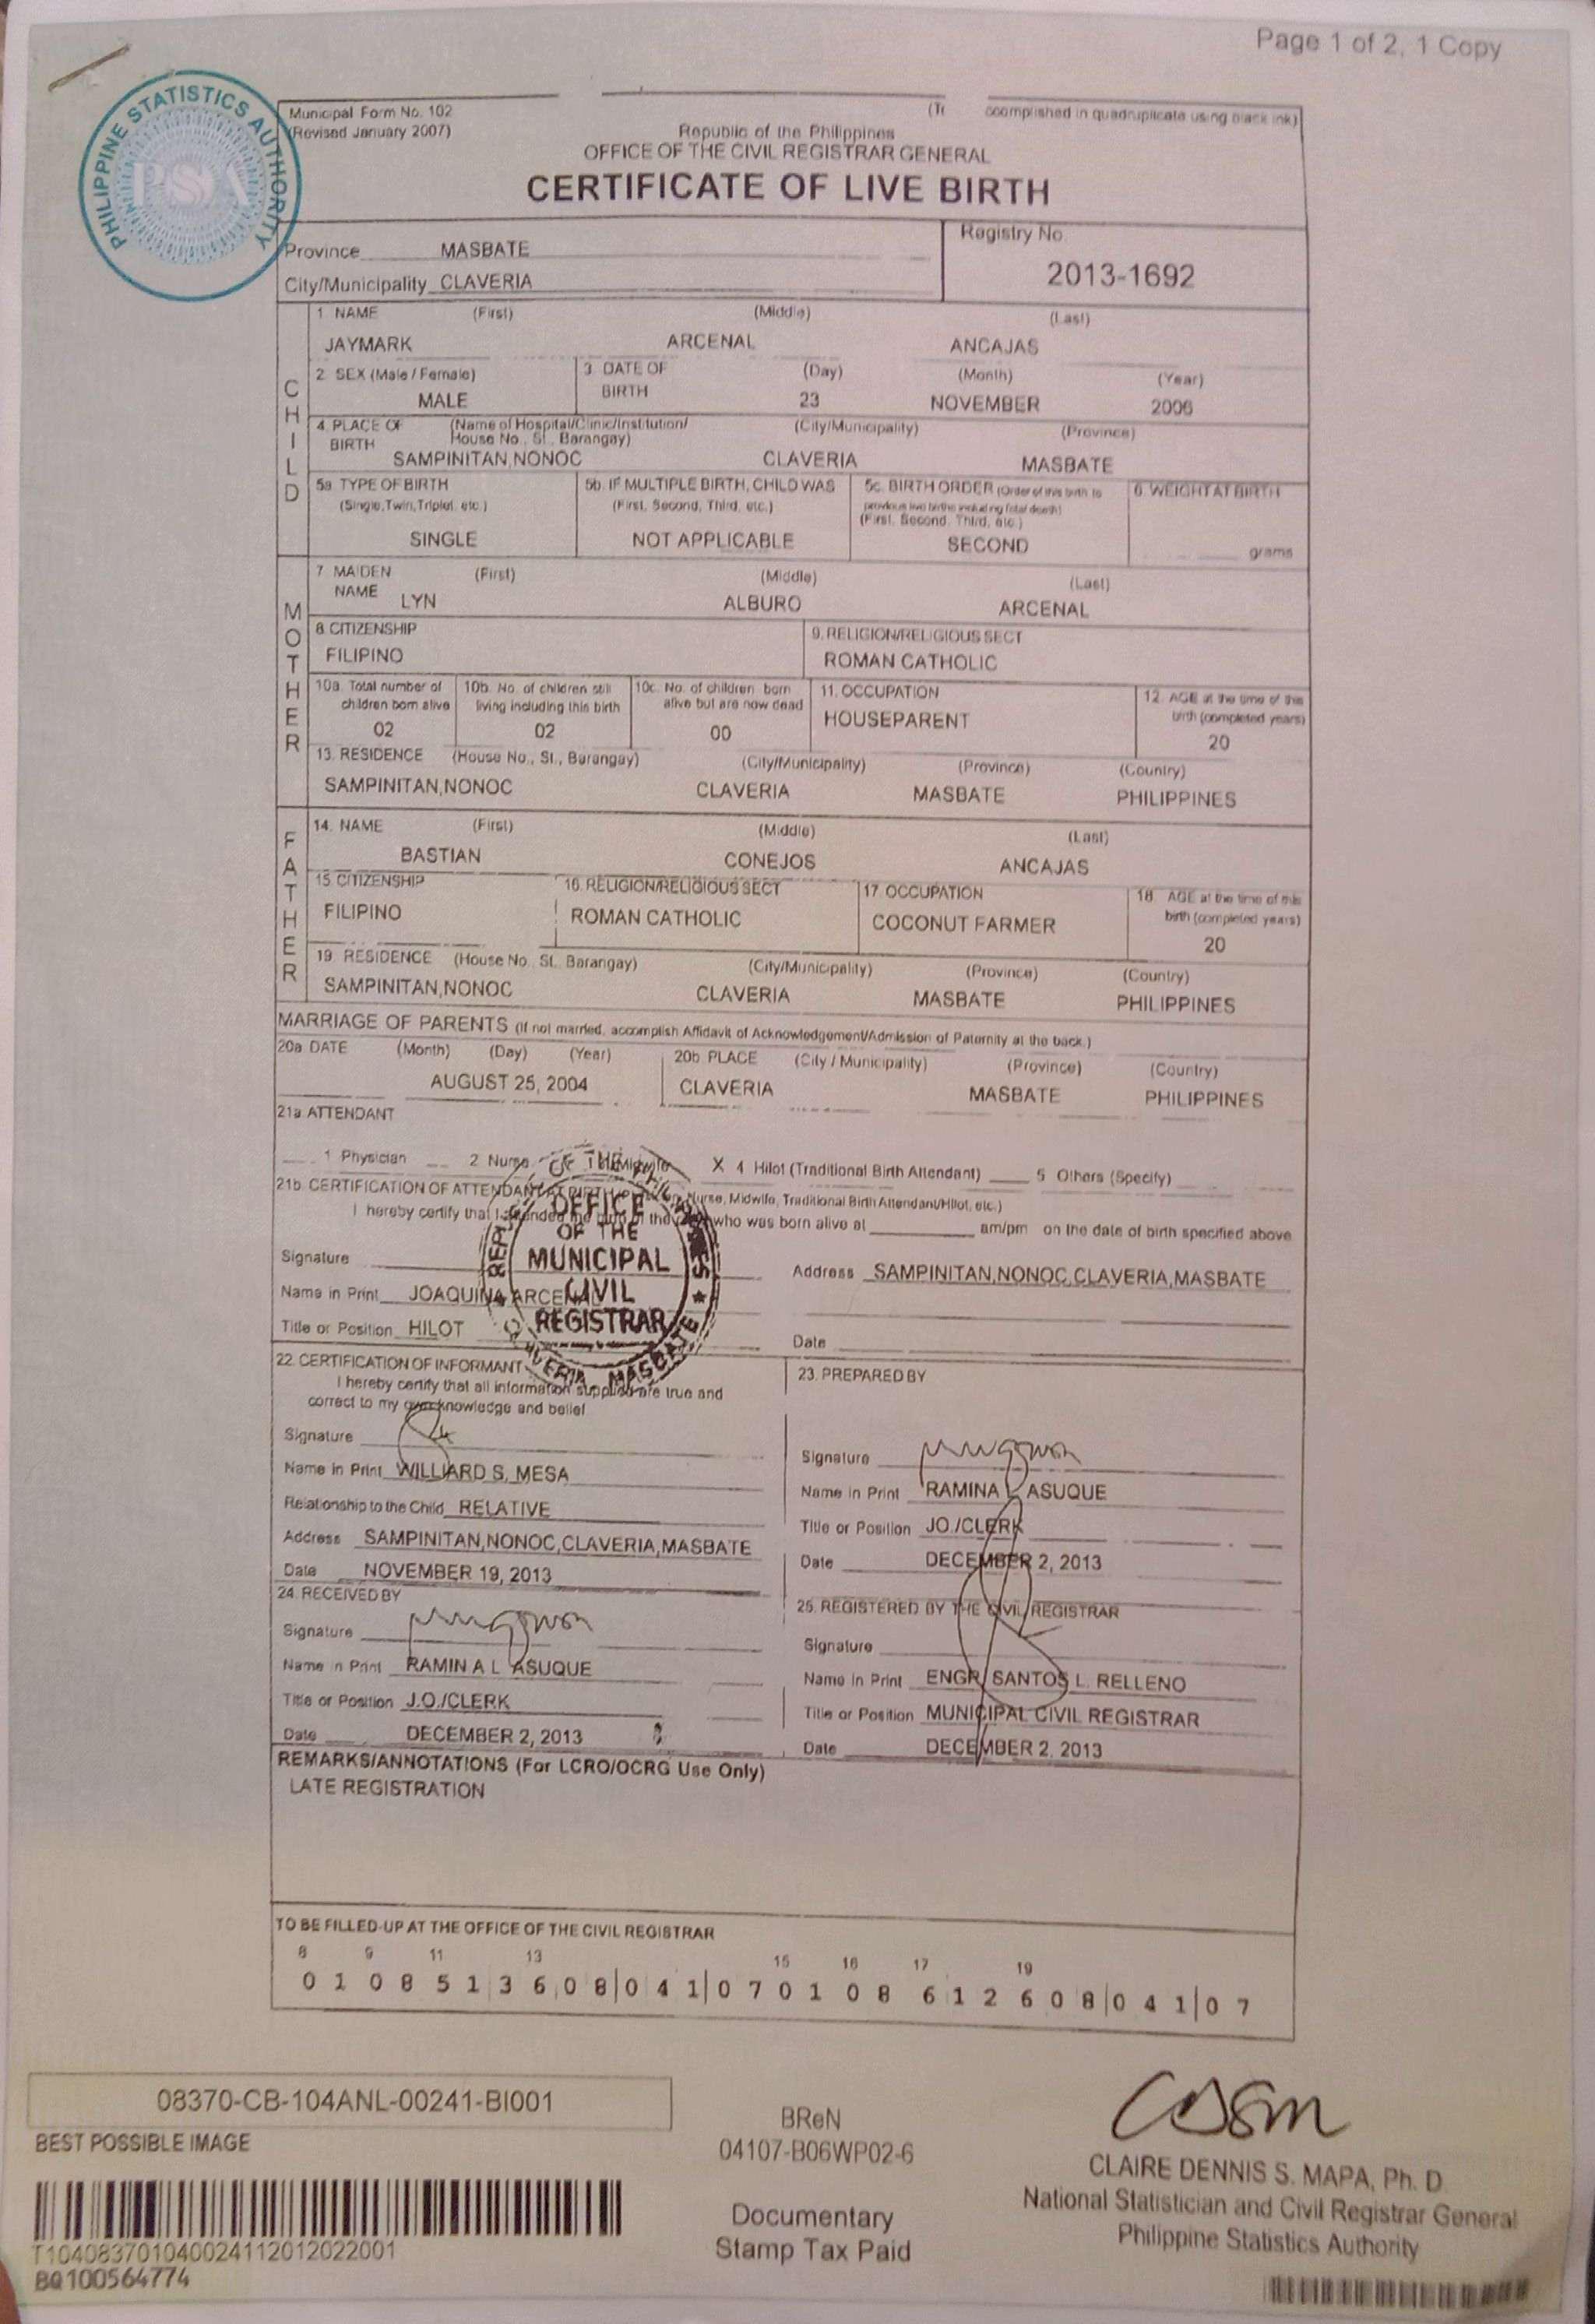 Page 1 of 2, 1 Copy
PHILIPPINE STATISTICS AUTHORITY
PSA
Municipal Form No. 102
(Revised January 2007)
complished in quadruplicate using black ink)
Republic of the Philippines
OFFICE OF THE CIVIL REGISTRAR GENERAL
CERTIFICATE OF LIVE BIRTH
Province MASBATE
City/Municipality CLAVERIA
Registry No.
2013-1692
CHILD
1. NAME (First) (Middle) (Last)
JAYMARK ARCENAL ANCAJAS
2. SEX (Male / Female)
MALE
3. DATE OF BIRTH (Day) (Month) (Year)
23 NOVEMBER 2006
4. PLACE OF BIRTH (Name of Hospital/Clinic/Institution/ House No., St., Barangay) (City/Municipality) (Province)
SAMPINITAN,NONOC CLAVERIA MASBATE
5a. TYPE OF BIRTH
(Single,Twin,Triplet, etc.)
SINGLE
5b. IF MULTIPLE BIRTH, CHILD WAS
(First, Second, Third, etc.)
NOT APPLICABLE
5c. BIRTH ORDER (Order of this birth to
previous live births including fetal death)
(First, Second, Third, etc.)
SECOND
6. WEIGHT AT BIRTH
grams
MOTHER
7. MAIDEN NAME (First) (Middle) (Last)
LYN ALBURO ARCENAL
8. CITIZENSHIP
FILIPINO
9. RELIGION/RELIGIOUS SECT
ROMAN CATHOLIC
10a. Total number of children born alive
02
10b. No. of children still living including this birth
02
10c. No. of children born alive but are now dead
00
11. OCCUPATION
HOUSEPARENT
12. AGE at the time of this birth (completed years)
20
13. RESIDENCE (House No., St., Barangay) (City/Municipality) (Province) (Country)
SAMPINITAN,NONOC CLAVERIA MASBATE PHILIPPINES
FATHER
14. NAME (First) (Middle) (Last)
BASTIAN CONEJOS ANCAJAS
15. CITIZENSHIP
FILIPINO
16. RELIGION/RELIGIOUS SECT
ROMAN CATHOLIC
17. OCCUPATION
COCONUT FARMER
18. AGE at the time of this birth (completed years)
20
19. RESIDENCE (House No., St., Barangay) (City/Municipality) (Province) (Country)
SAMPINITAN,NONOC CLAVERIA MASBATE PHILIPPINES
MARRIAGE OF PARENTS (If not married, accomplish Affidavit of Acknowledgement/Admission of Paternity at the back.)
20a. DATE (Month) (Day) (Year)
AUGUST 25, 2004
20b. PLACE (City / Municipality) (Province) (Country)
CLAVERIA MASBATE PHILIPPINES
21a. ATTENDANT
1 Physician 2 Nurse X 4 Hilot (Traditional Birth Attendant) 5 Others (Specify)
21b. CERTIFICATION OF ATTENDANT AT BIRTH Nurse, Midwife, Traditional Birth Attendant/Hilot, etc.)
I hereby certify that I attended the birth of the who was born alive at am/pm on the date of birth specified above
OFFICE OF THE MUNICIPAL CIVIL REGISTRAR
CLAVERIA MASBATE
Signature
Name in Print JOAQUINA ARCENAL
Title or Position HILOT
Address SAMPINITAN,NONOC,CLAVERIA,MASBATE
Date
22. CERTIFICATION OF INFORMANT
I hereby certify that all information supplied are true and
correct to my own knowledge and belief
Signature
Name in Print WILLIARD S. MESA
Relationship to the Child RELATIVE
Address SAMPINITAN,NONOC,CLAVERIA,MASBATE
Date NOVEMBER 19, 2013
23. PREPARED BY
Signature
Name in Print RAMINA L ASUQUE
Title or Position JO./CLERK
Date DECEMBER 2, 2013
24. RECEIVED BY
Signature
Name in Print RAMIN A L ASUQUE
Title or Position J.O./CLERK
Date DECEMBER 2, 2013
25. REGISTERED BY THE CIVIL REGISTRAR
Signature
Name in Print ENGR. SANTOS L. RELLENO
Title or Position MUNICIPAL CIVIL REGISTRAR
Date DECEMBER 2, 2013
REMARKS/ANNOTATIONS (For LCRO/OCRG Use Only)
LATE REGISTRATION
TO BE FILLED-UP AT THE OFFICE OF THE CIVIL REGISTRAR
8 9 11 13 15 16 17 19
0 1 0 8 5 1 3 6 0 8 0 4 1 0 7 0 1 0 8 6 1 2 6 0 8 0 4 1 0 7
08370-CB-104ANL-00241-BI001
BEST POSSIBLE IMAGE
T104083701040024112012022001
BQ100564774
BReN
04107-B06WP02-6
Documentary
Stamp Tax Paid
CLAIRE DENNIS S. MAPA, Ph. D.
National Statistician and Civil Registrar General
Philippine Statistics Authority